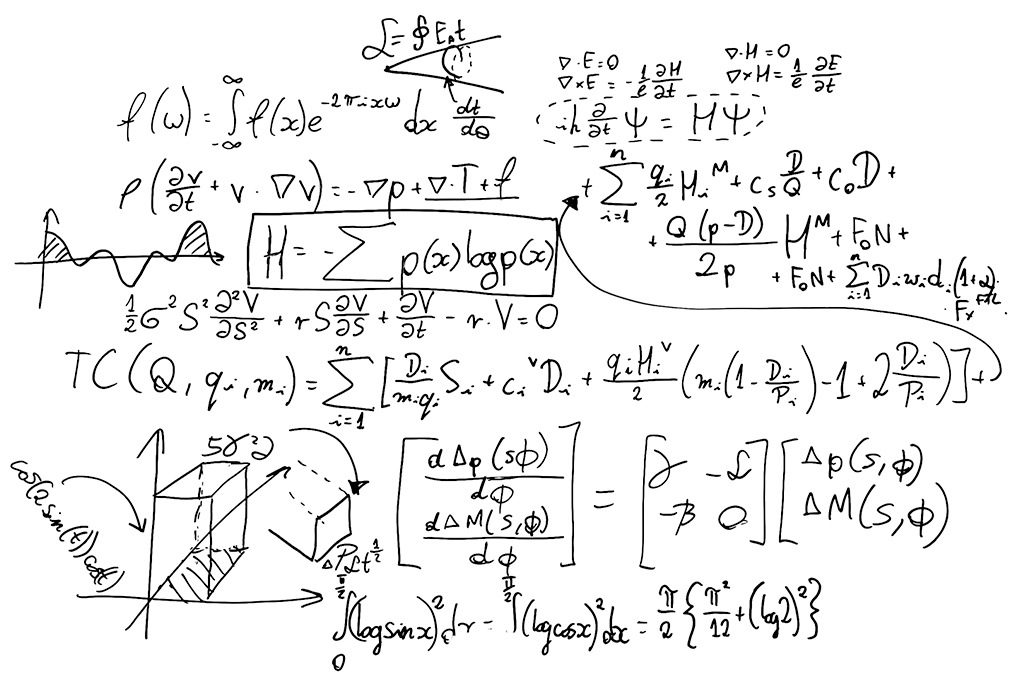 ℒ = ∮ E₀t
dt/dθ
∇·E = 0
∇×E = -1/e ∂H/∂t
∇·H = 0
∇×H = 1/e ∂E/∂t
f(ω) = ∫_{-∞}^{∞} f(x)e^{-2πixω} dx
iħ ∂/∂t Ψ = HΨ
ρ(∂v/∂t + v·∇v) = -∇p + ∇·T + f
+ ∑_{i=1}^{n} q_i/2 H_i^M + c_s D/Q + c_oD +
+ Q(p-D)/2p H^M + F_oN +
+ F_oN + ∑_{i=1}^{n} D_i w_i d_i (1+α)
H = -∑ p(x)logp(x)
1/2 σ²S² ∂²V/∂S² + rS ∂V/∂S + ∂V/∂t - r·V = 0
TC(Q, q_i, m_i) = ∑_{i=1}^{n} [D_i/(m_iq_i) S_i + c_i^v D_i + q_iH_i^v/2 (m_i(1 - D_i/P_i) - 1 + 2 D_i/P_i)] +
cos(2sin(t))cos(t)
[dΔp(sϕ)/dϕ
dΔM(s,ϕ)/dϕ] = [γ -ℒ
-β 0] [Δp(s,ϕ)
ΔM(s,ϕ)]
∫_0^{π/2} (logsinx)² dx = ∫^{π/2} (logcosx)² dx = π/2 {π²/12 + (log2)²}